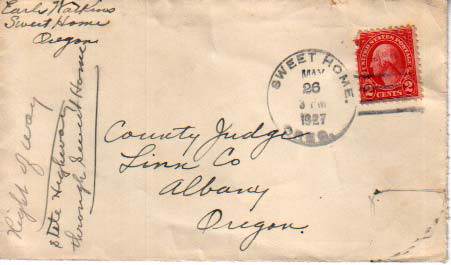 Earl Watkins
Sweet Home
Oregon
SWEET HOME.
MAY
26
3 PM
1927
OREG.
UNITED STATES POSTAGE
2 CENTS 2
County Judge
Linn Co
Albany
Oregon.
Right of way
State Highway
through Sweet Home